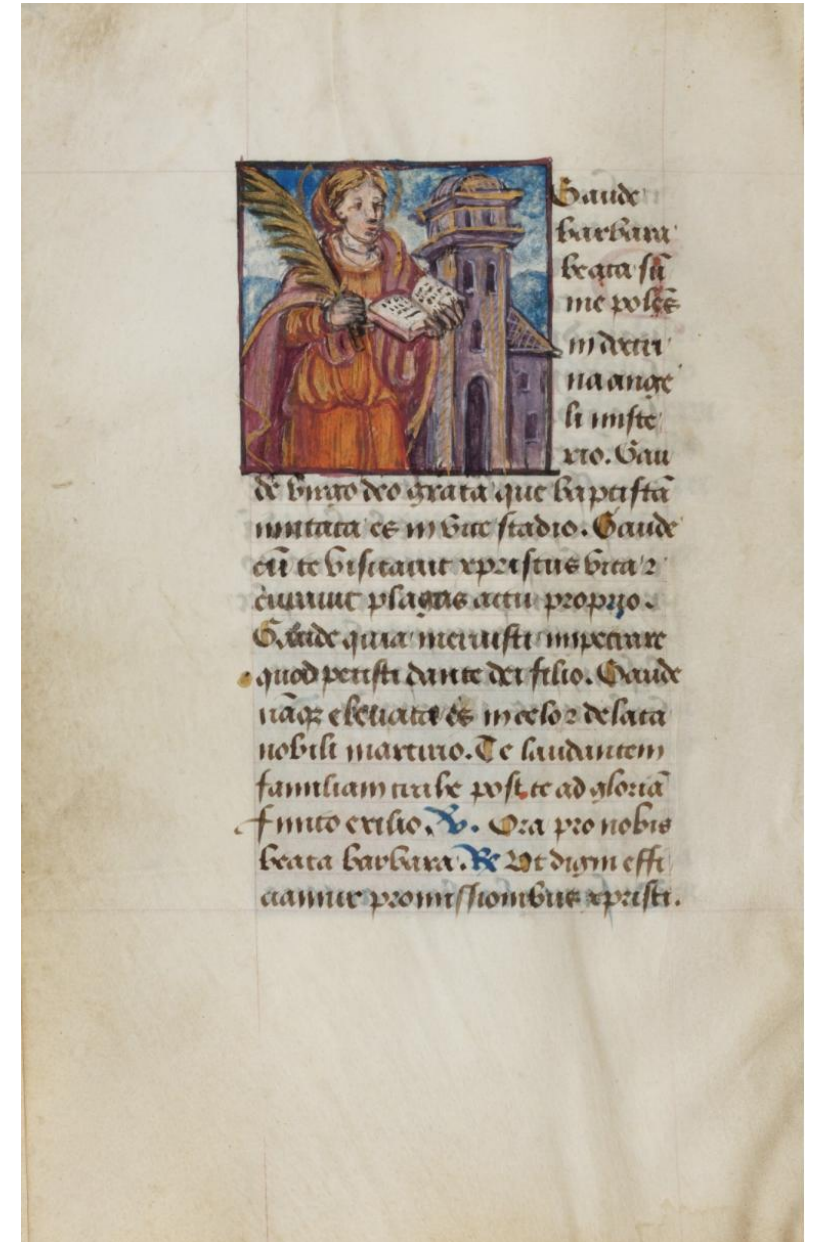 Gaude
barbara
beata sū
me polēs
in doctri
na ange
li miste
rio. Gau
de virgo deo grata que baptistā
imitata es in vite stadio. Gaude
cū te visitavit xpristus vita ꝛ
curavit plagas actu proprio.
Gaude quia meruisti impetrare
quod petisti dante dei filio. Gaude
nāqꝫ elevata es in celo ꝛ delata
nobili martirio. Te laudantem
familiam trahe post te ad gloriā
finito exilio. ℣. Ora pro nobis
beata barbara. ℟ Ut digni effi
ciamur promissionibus xpristi.